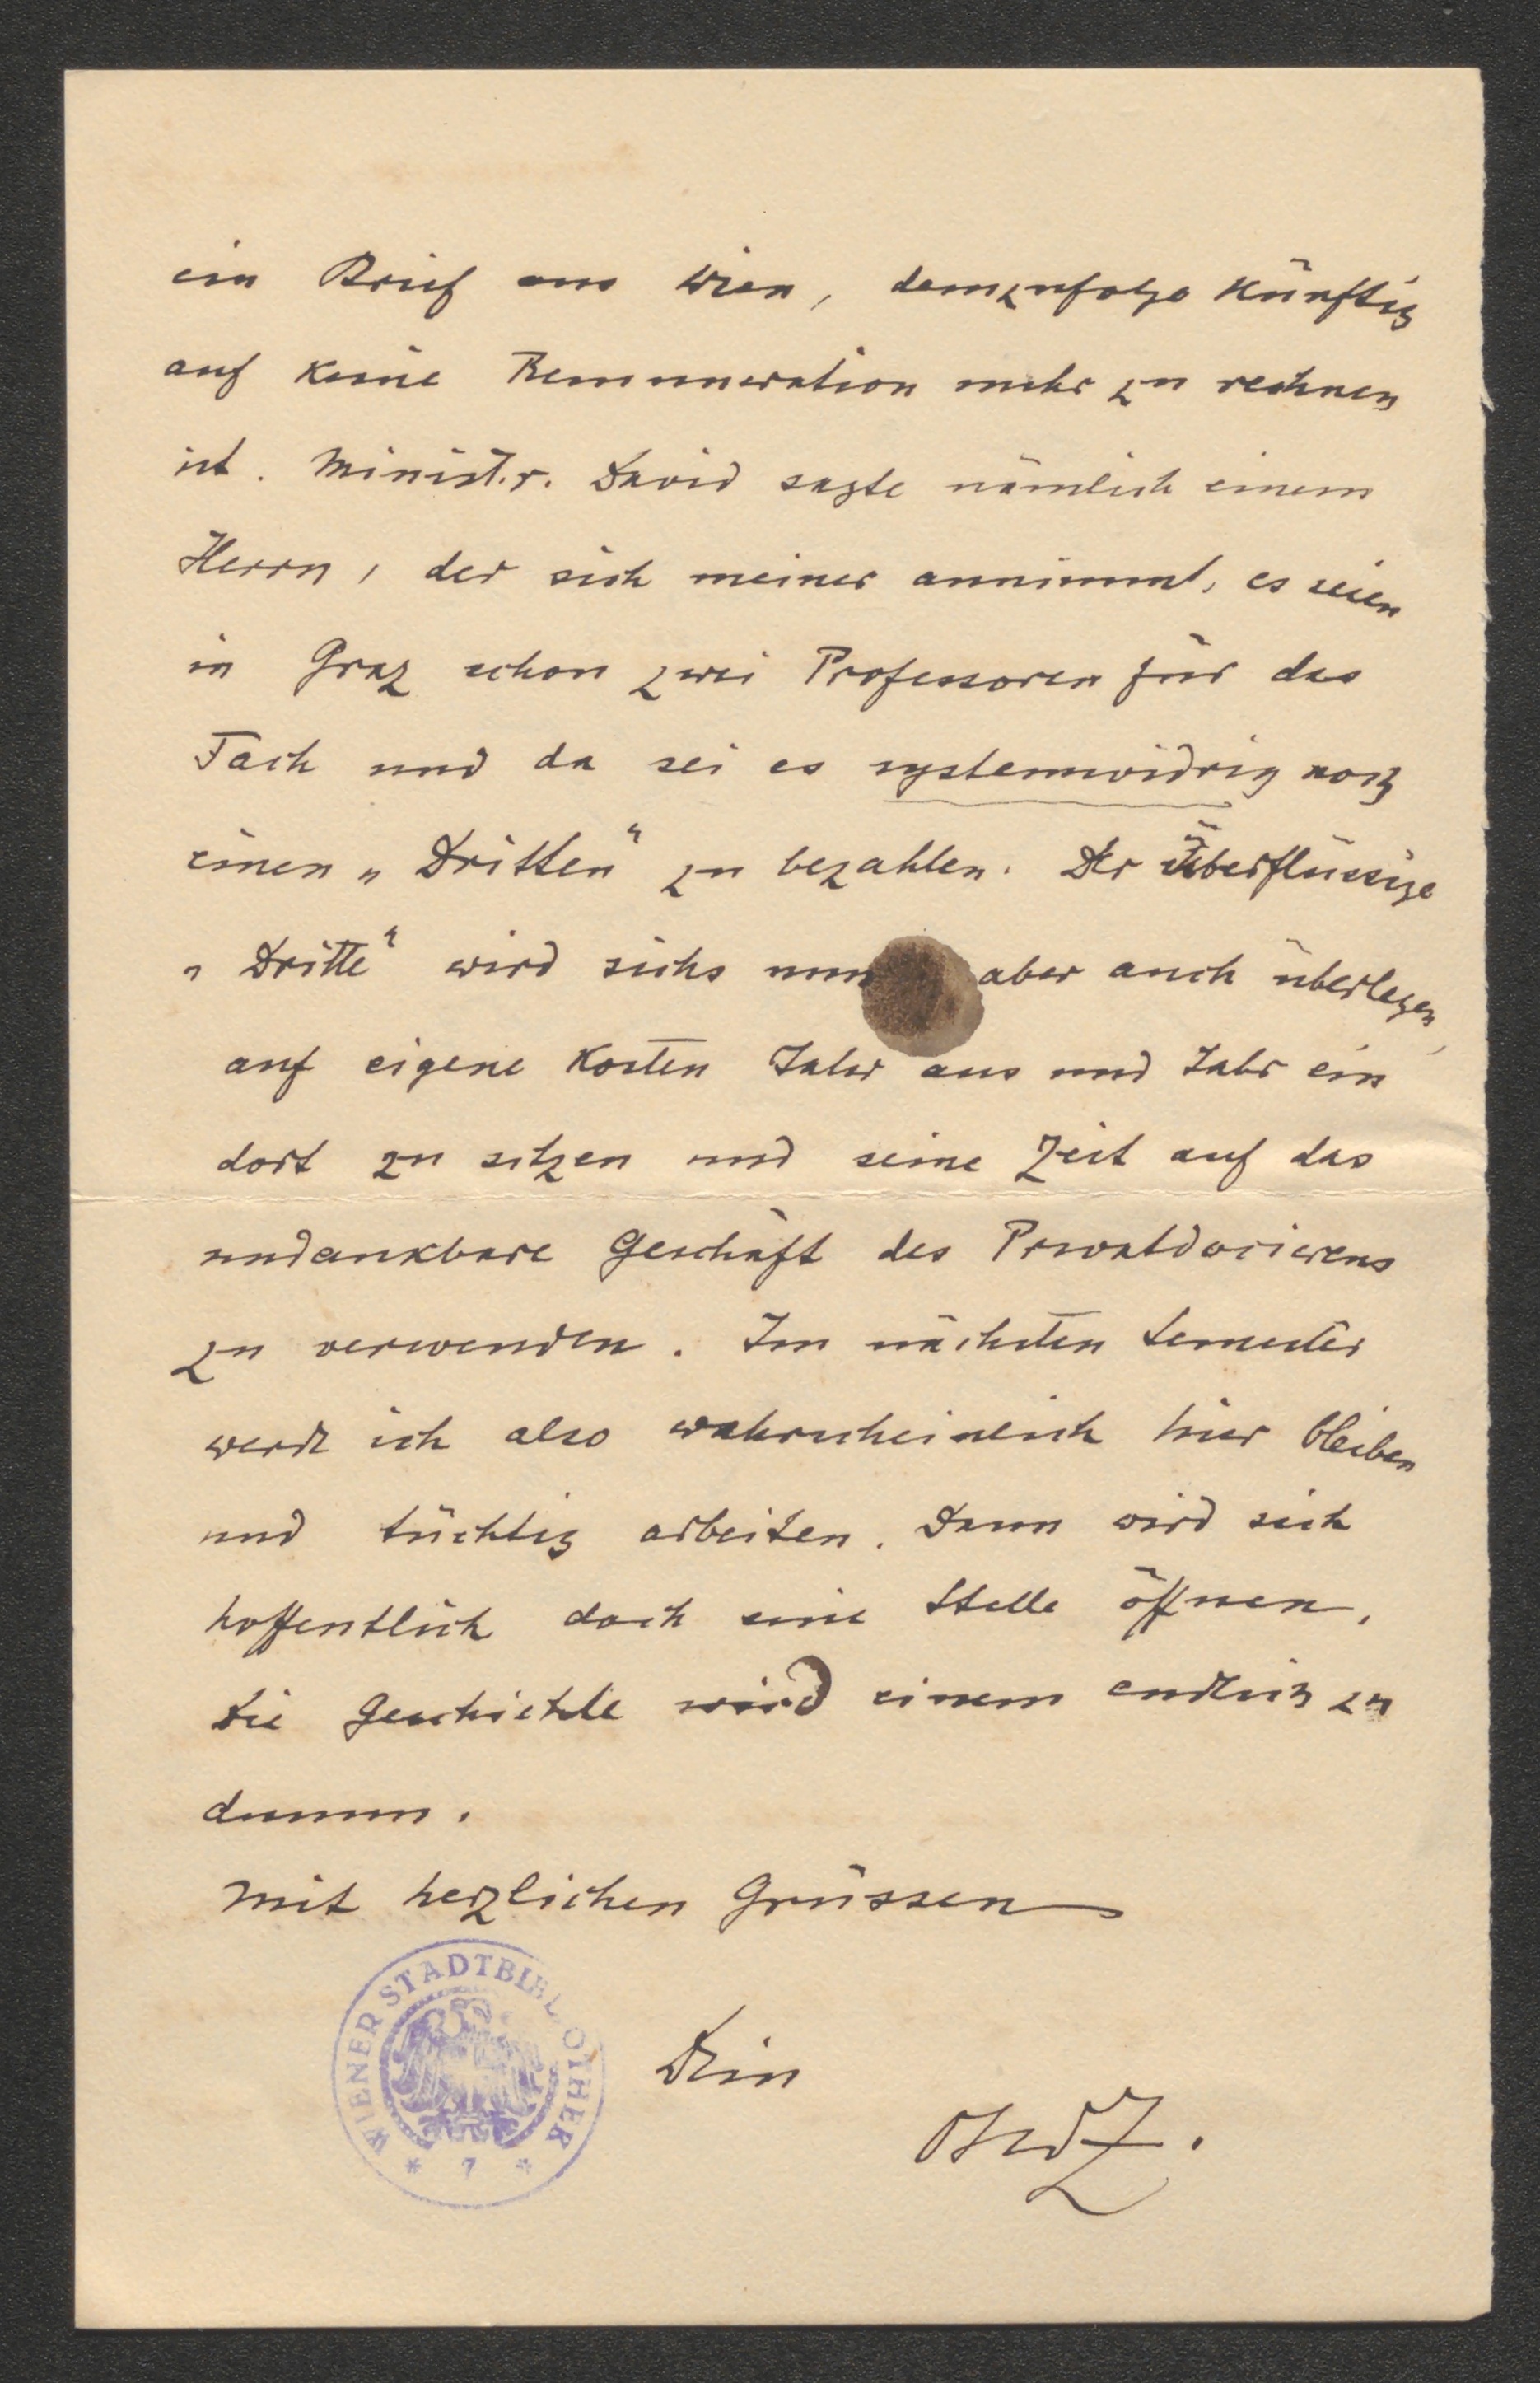 ein Brief aus Wien, demzufolge künftig
auf keine Remuneration mehr zu rechnen
ist. Minist.r. David sagte nämlich einem
Herrn, der sich meiner annimmt, es seien
in Graz schon zwei Professoren für das
Fach und da sei es systemwidrig noch
einen „Dritten“ zu bezahlen. Der Überflüssige
„Dritte“ wird sichs nun aber auch überlegen,
auf eigene Kosten Jahr aus und Jahr ein
dort zu sitzen und seine Zeit auf das
undankbare Geschäft des Privatdocierens
zu verwenden. Im nächsten Semester
werde ich also wahrscheinlich hier bleiben
und tüchtig arbeiten. Dann wird sich
hoffentlich doch eine Stelle öffnen.
Die Geschichte wird einem endlich zu
dumm.
Mit herzlichen Grüssen
Dein
WIENER STADTBIBLIOTHEK
* 7 *